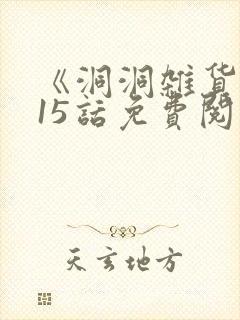 《洞洞雜貨
15話免費閱
天玄地方